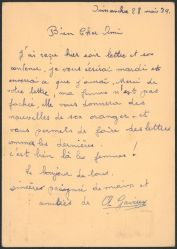 Dimanche 28 mai 39.
Bien Cher Ami
J'ai reçu cher ami lettre et son
contenu. Je vous écrirai mardi et
enverrai ce que j'aurai. Merci de
votre lettre, ma femme n'est pas
fachée. Elle vous donnera des
nouvelles de son oranger - et
vous permets de faire des lettres
comme les dernières.
c'est bien là les femmes!
Le bonjour de tous.
sincères poignée de mains et
amitiés de